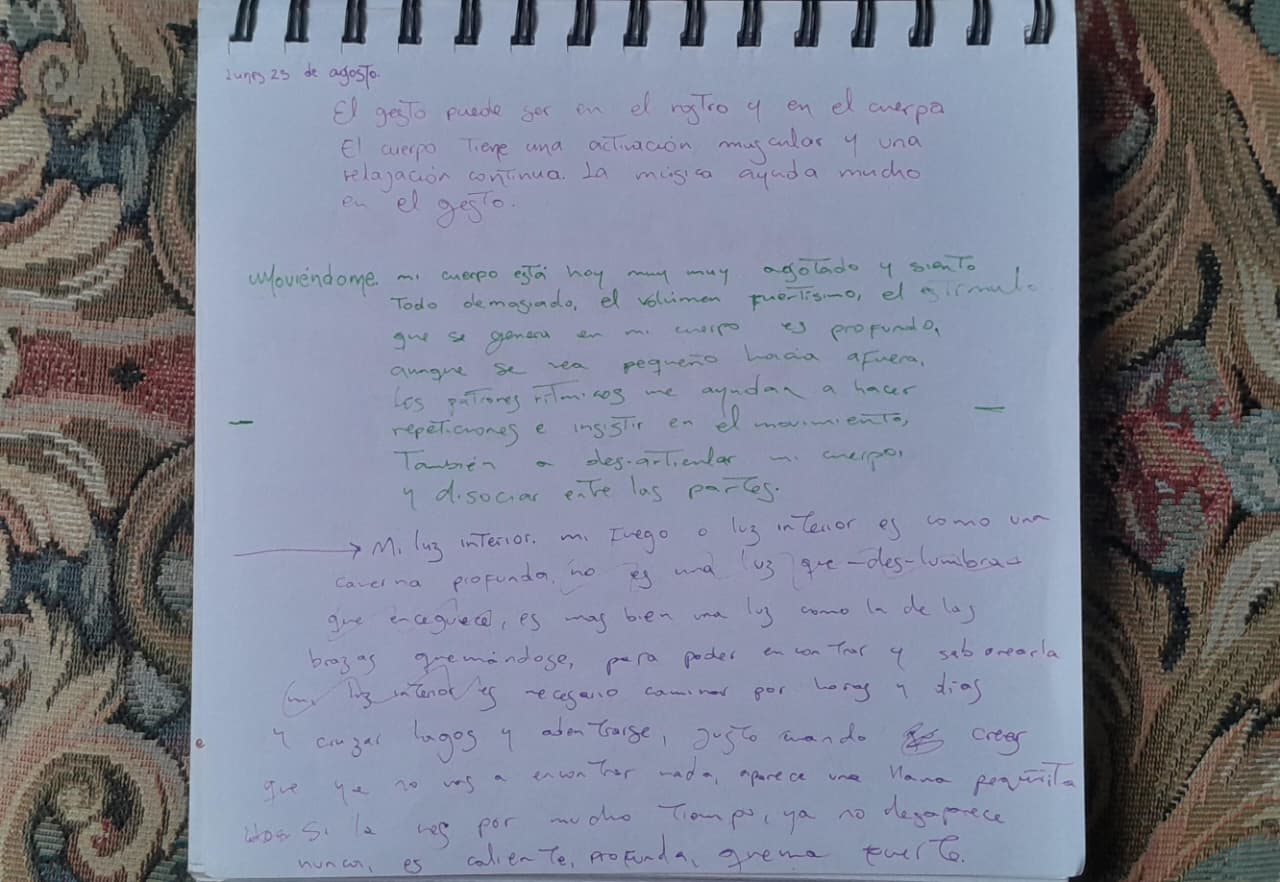 lunes 23 de agosto.
El gesto puede ser en el rostro y en el cuerpo
El cuerpo tiene una activación muscular y una
relajación continua. La música ayuda mucho
en el gesto.
Moviéndome. mi cuerpo está hoy muy muy agotado y siento
todo demasiado, el volúmen fuertísimo, el
que se genera en mi cuerpo es profundo,
aunque se vea pequeño hacia afuera,
los patrones rítmicos me ayudan a hacer
repeticiones e insistir en el movimiento,
También a des-articular mi cuerpo,
y disociar entre las partes.
→ Mi luz interior. mi Fuego o luz interior es como una
caverna profunda, no es una luz que -des-lumbra-
que enceguece, es mas bien una luz como la de las
brazas quemándose, para poder encontrar y saborearla
(mi luz interior) es necesario caminar por horas y días
y cruzar lagos y adentrarse, justo cuando crees
que ya no vas a encontrar nada, aparece una llama pequeñita
Si la ves por mucho tiempo, ya no desaparece
nunca, es caliente, profunda, quema fuerte.